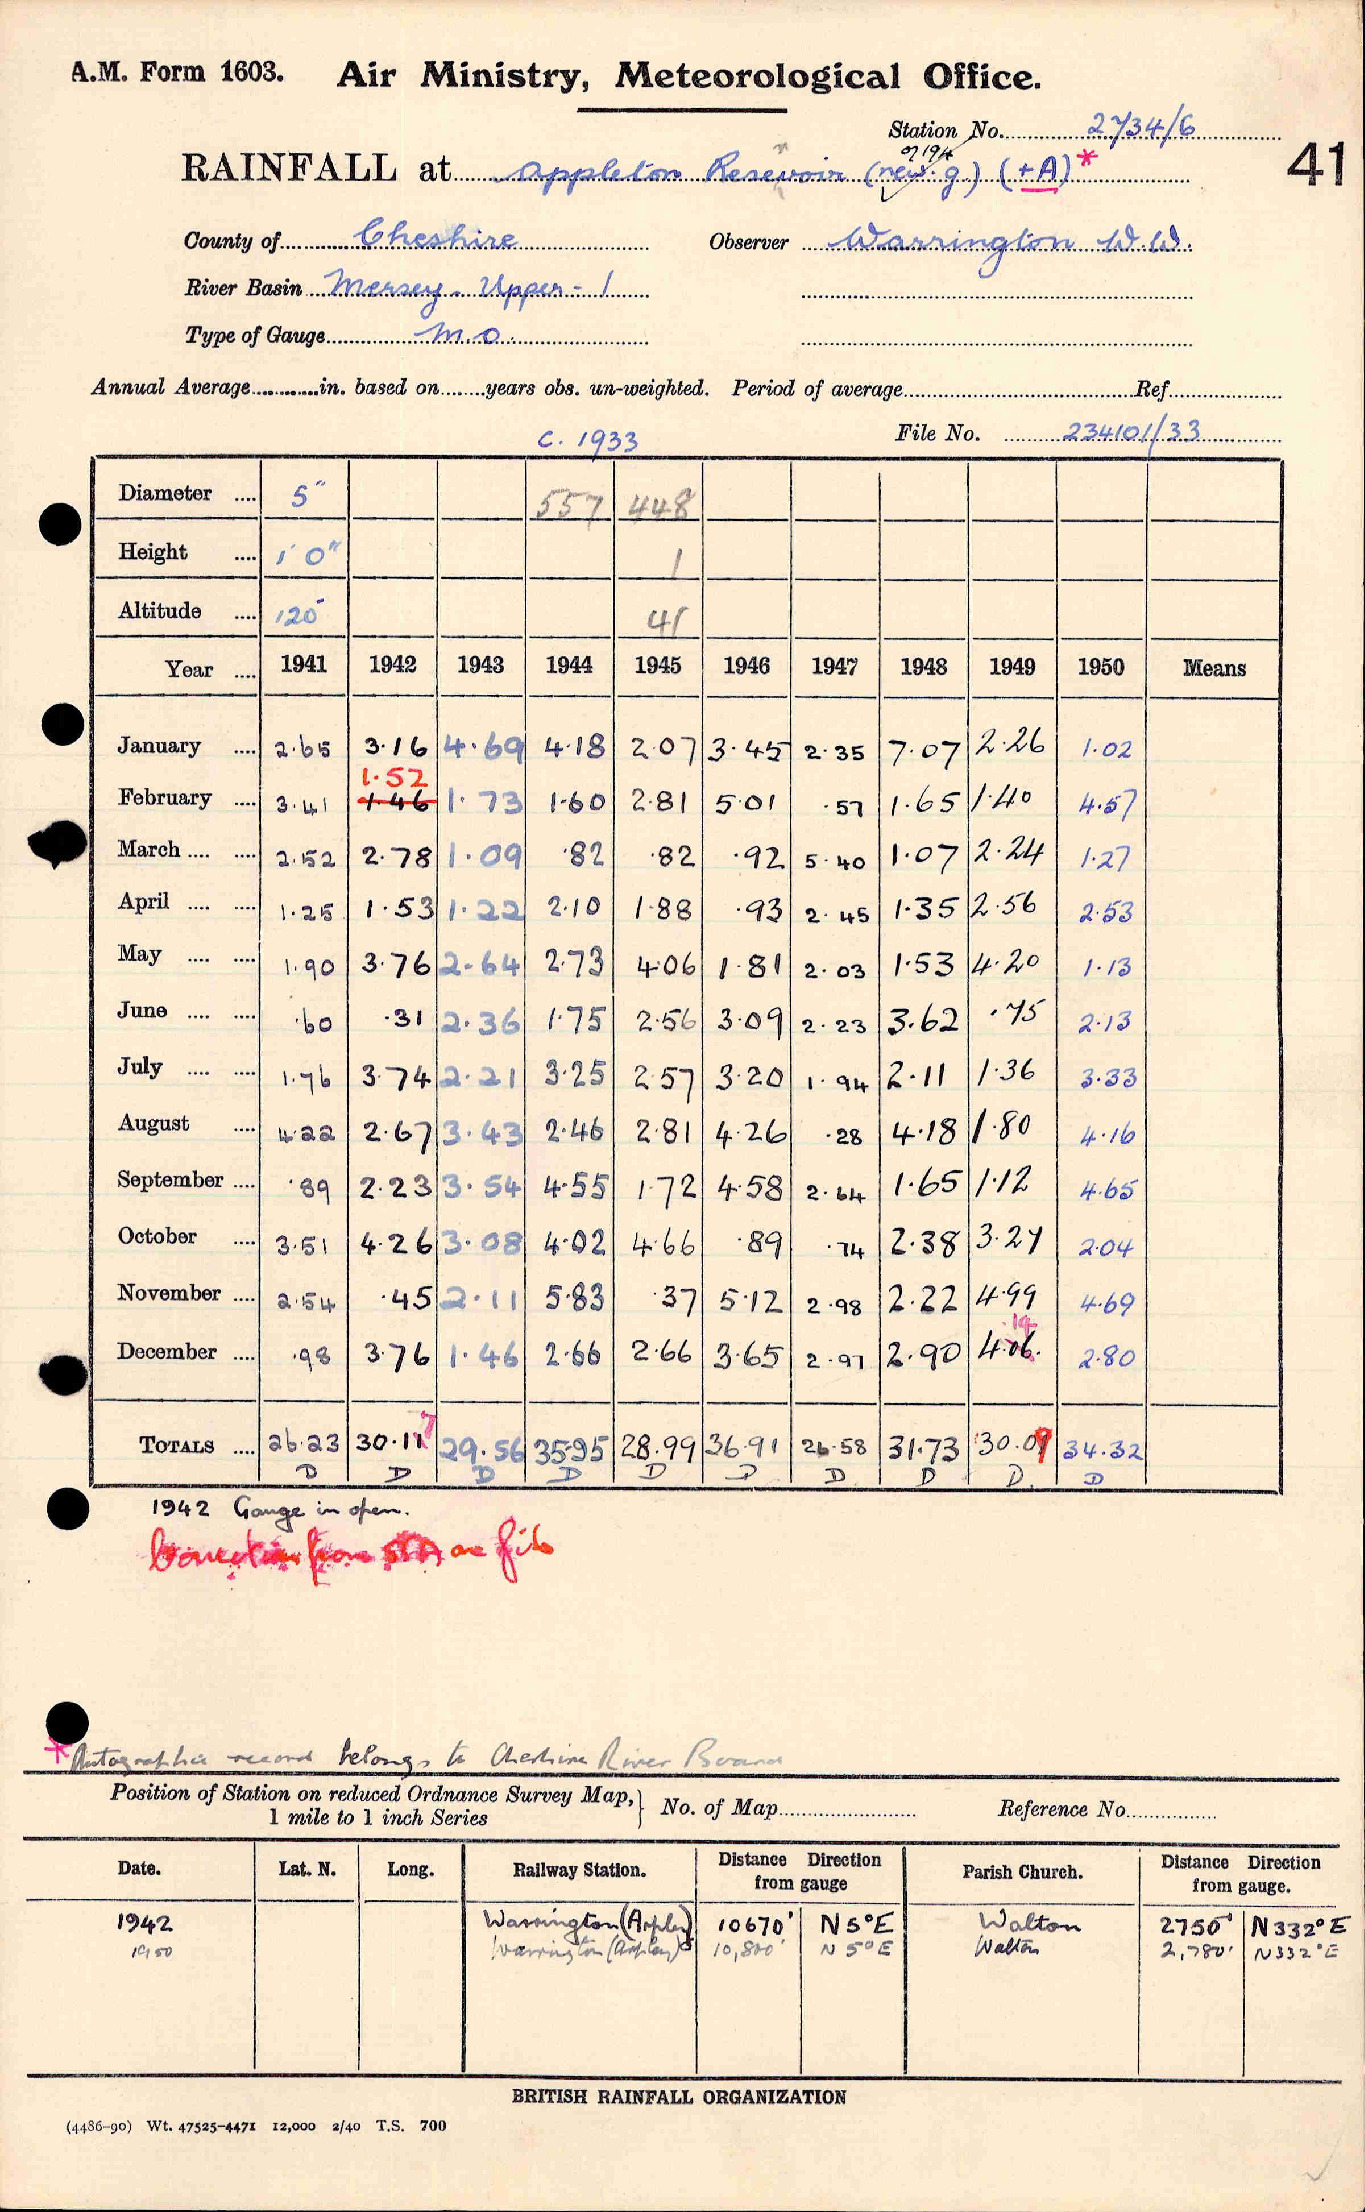 A.M. Form 1603. Air Ministry, Meteorological Office.
Station No. 2734/6
41
RAINFALL at Appleton Resevoir (new g) (+A)*
County of Cheshire Observer Warrington W.W.
River Basin Mersey - Upper - 1
Type of Gauge M.O.
Annual Average in. based on years obs. un-weighted. Period of average Ref
c. 1933 File No. 234101/33
Diameter 5" 557 448
Height 1' 0" 1
Altitude 120' 41
Year 1941 1942 1943 1944 1945 1946 1947 1948 1949 1950 Means
January 2.65 3.16 4.69 4.18 2.07 3.45 2.35 7.07 2.26 1.02
1.52
February 3.41 1.46 1.73 1.60 2.81 5.01 .57 1.65 1.40 4.57
March 2.52 2.78 1.09 .82 .82 .92 5.40 1.07 2.24 1.27
April 1.25 1.53 1.22 2.10 1.88 .93 2.45 1.35 2.56 2.53
May 1.90 3.76 2.64 2.73 4.06 1.81 2.03 1.53 4.20 1.13
June .60 .31 2.36 1.75 2.56 3.09 2.23 3.62 .75 2.13
July 1.76 3.74 2.21 3.25 2.57 3.20 1.94 2.11 1.36 3.33
August 4.22 2.67 3.43 2.46 2.81 4.26 .28 4.18 1.80 4.16
September .89 2.23 3.54 4.55 1.72 4.58 2.64 1.65 1.12 4.65
October 3.51 4.26 3.08 4.02 4.66 .89 .74 2.38 3.27 2.04
November 2.54 .45 2.11 5.83 .37 5.12 2.98 2.22 4.99 4.69
.14
December .98 3.76 1.46 2.66 2.66 3.65 2.97 2.90 4.06 2.80
TOTALS 26.23 30.17 29.56 35.95 28.99 36.91 26.58 31.73 30.09 34.32
D D D D D D D D D. D
1942 Gauge in open.
Correction from on file
*Autographic record belongs to Cheshire River Board
Position of Station on reduced Ordnance Survey Map, 1 mile to 1 inch Series } No. of Map Reference No.
Date. Lat. N. Long. Railway Station. Distance Direction from gauge Parish Church. Distance Direction from gauge.
1942 Warrington (Arpley) 10670' N5°E Walton 2750' N332°E
1950 Warrington (Arpley) 10,800' N 5°E Walton 2,780' N332°E
BRITISH RAINFALL ORGANIZATION
(4486-90) Wt. 47525-4471 12,000 2/40 T.S. 700